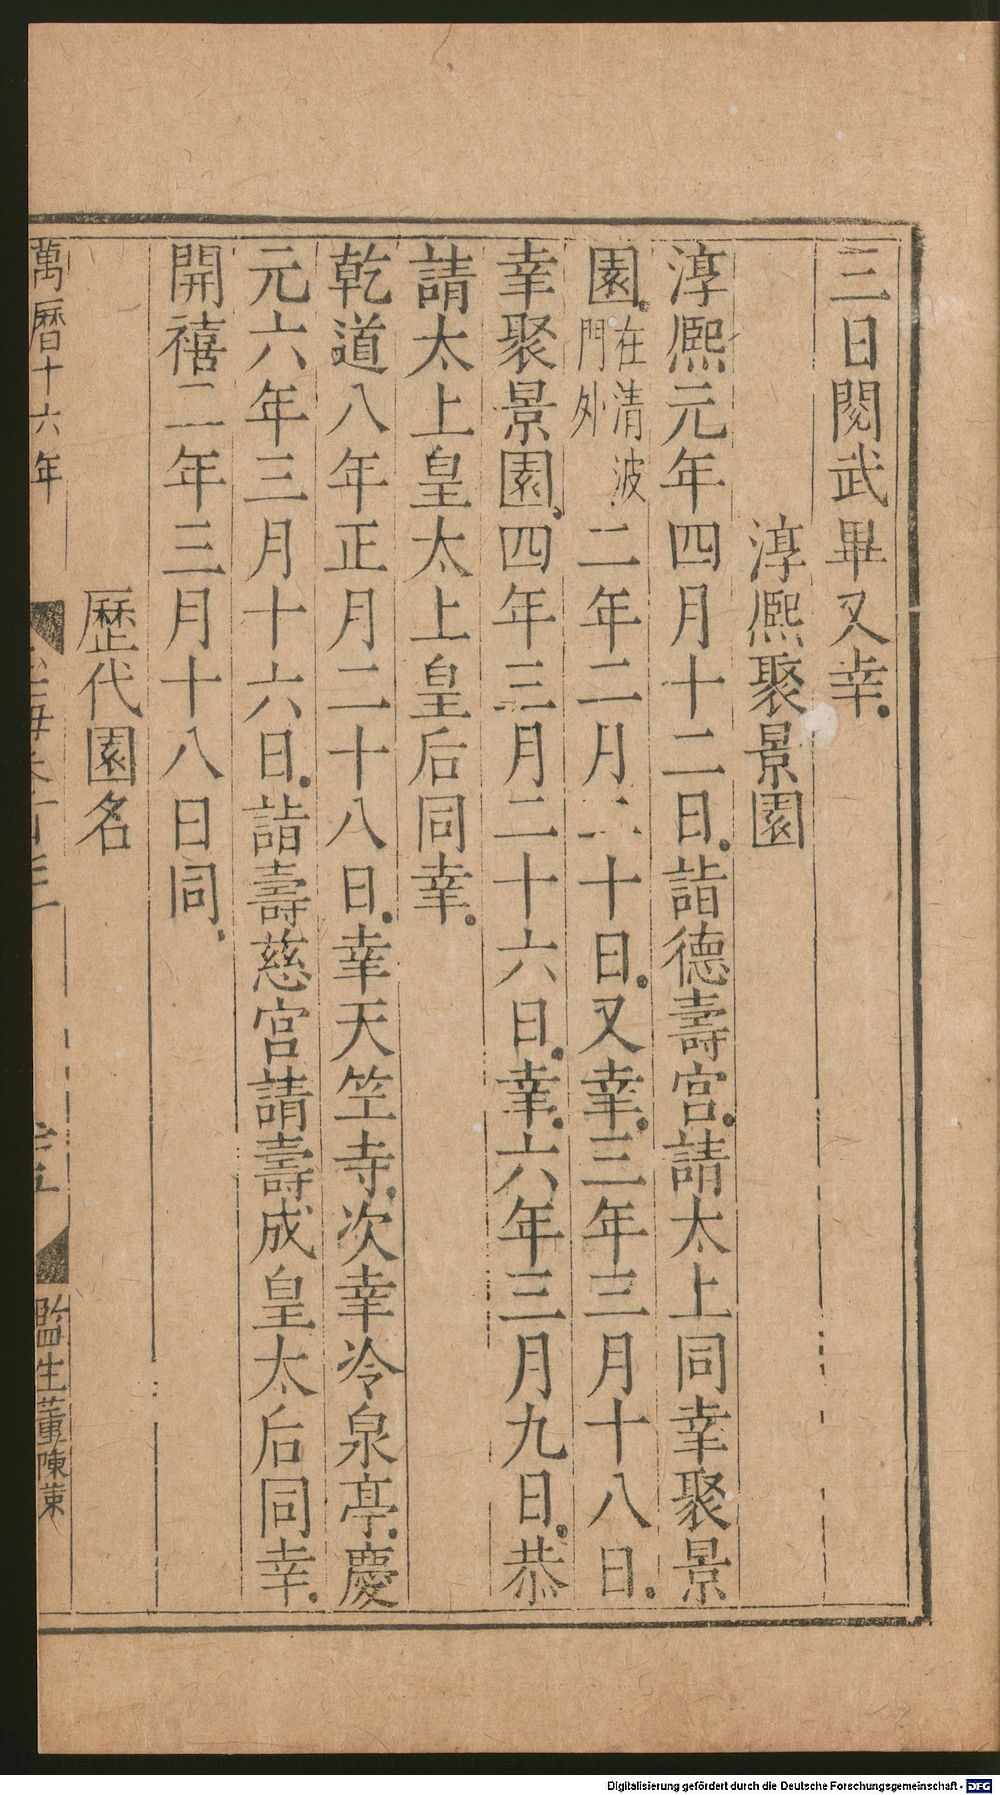 三日閱武畢又幸
淳熙聚景園
淳熙元年四月十二日詣德壽宮請太上同幸聚景
園在清波門外二年二月二十日又幸三年三月十八日
幸聚景園四年三月二十六日幸六年三月九日恭
請太上皇太上皇后同幸
乾道八年正月二十八日幸天竺寺次幸冷泉亭慶
元六年三月十六日詣壽慈宮請壽成皇太后同幸
開禧二年三月十八日同
歷代園名
萬曆十六年
監生董陳策
Digitalisierung gefördert durch die Deutsche Forschungsgemeinschaft - DFG